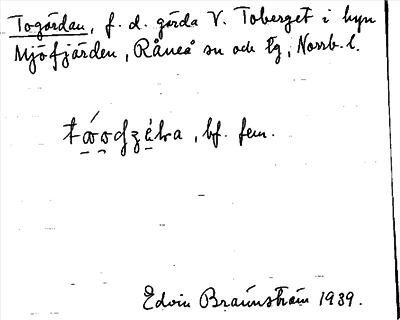 Togärdan, f. d. gärda V. Toberget i byn
Mjöfjärden, Råneå sn och tg, Norrb. l.
, bf. fem.
Edvin Brännström 1939.